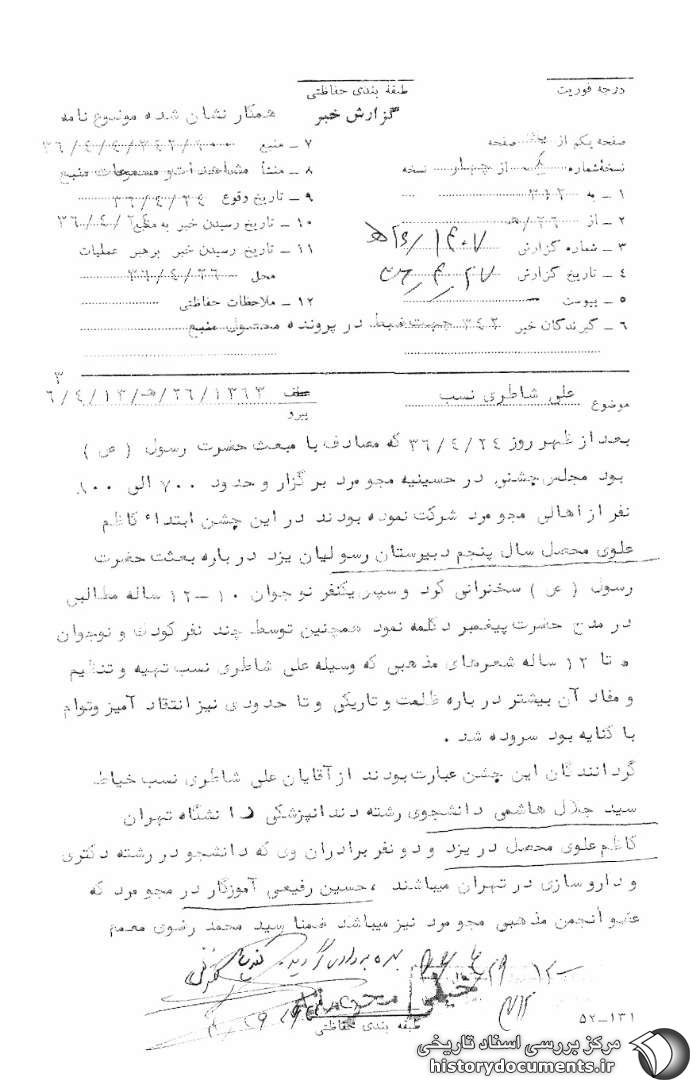 درجه فوریت
طبقه بندی حفاظتی
گزارش خبر
همکار نشان شده موضوع نامه
صفحه یکم از صفحه
نسخه شماره از چهار نسخه
۱ ـ به ۳۱۲
۲ ـ از ۲۶/هـ
۳ ـ شماره گزارش
۴ ـ تاریخ گزارش
۵ ـ پیوست
۶ ـ گیرندگان خبر ۳۴۲ جهت ضبط در پرونده محصول منبع
۷ ـ منبع
۸ ـ منشأ مشاهدات و مسموعات منبع
۹ ـ تاریخ وقوع ۳۶/۴/۲۴
۱۰ ـ تاریخ رسیدن خبر به منبع
۱۱ ـ تاریخ رسیدن خبر برهبر عملیات
محل ۳۶/۴/۲۶
۱۲ ـ ملاحظات حفاظتی
موضوع علی شاطری نسب
عطف
پیرو
بعد از ظهر روز ۳۶/۴/۲۴ که مصادف با مبعث حضرت رسول ( ص )
بود مجلس جشنی در حسینیه مجومرد برگزار و حدود ۷۰۰ الی
نفر از اهالی مجومرد شرکت نموده بودند در این جشن ابتداء کاظم
علوی محصل سال پنجم دبیرستان رسولیان یزد درباره بعثت حضرت
رسول ( ص ) سخنرانی کرد و سپس یکنفر نوجوان ۱۰ـ۱۲ ساله مطالبی
در مدح حضرت پیغمبر دکلمه نمود همچنین توسط چند نفر کودک و نوجوان
تا ۱۲ ساله شعرهای مذهبی که وسیله علی شاطری نسب تهیه و تنظیم
و مفاد آن بیشتر درباره ظلمت و تاریکی و تا حدودی نیز انتقاد آمیز و توام
با کنایه بود سروده شد .
گردانندگان این جشن عبارت بودند از آقایان علی شاطری نسب خیاط
سید جلال هاشمی دانشجوی رشته دندانپزشکی دانشگاه تهران
کاظم علوی محصل در یزد و دو نفر برادران وی که دانشجو در رشته دکتری
و داروسازی در تهران میباشند ، حسین رفیعی آموزگار در مجومرد که
عضو انجمن مذهبی مجومرد نیز میباشد ضمنا سید محمد رضوی معمم
بهره برداری گردید
طبقه بندی حفاظتی
۵۲ـ۱۳۱
مرکز بررسی اسناد تاریخی
historydocuments.ir